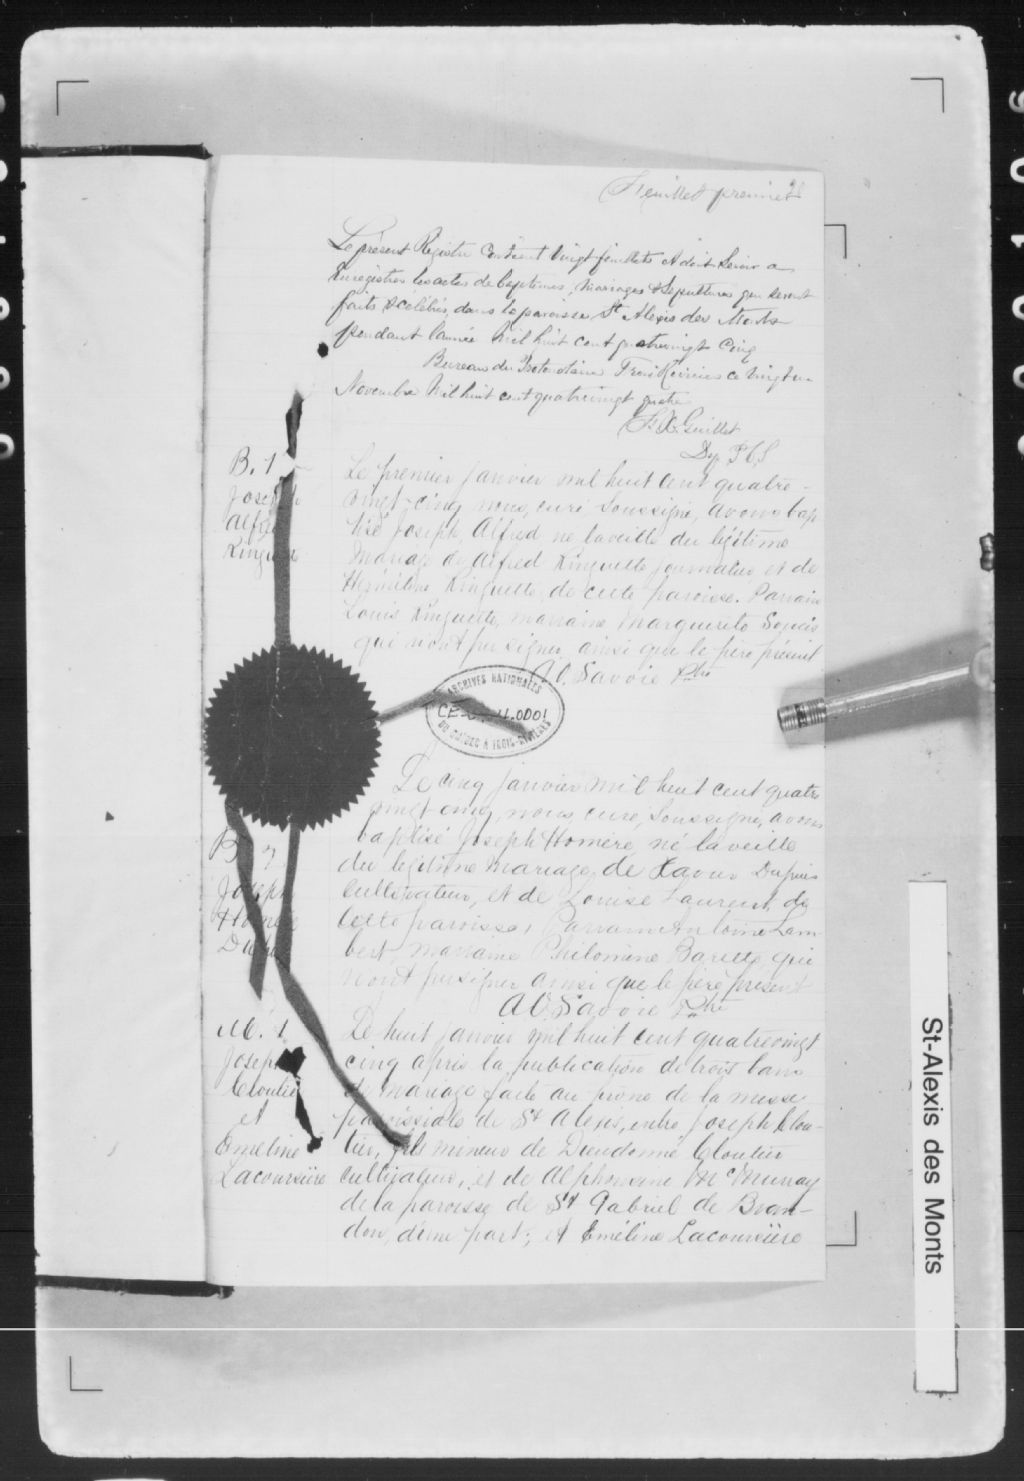 Feuillet premier
Le présent Registre Contient Vingt feuillets et doit Servir a
Enregistrer les actes de baptêmes, mariages & Sépultures qui seront
faits & célébrés, dans la paroisse St Alexis des Monts
pendant l'année Mil huit cent quatrevingt Cinq
Bureau du Protonotaire Trois Rivières ce Vingt
Novembre Mil huit cent quatrevingt quatre
F. X. Guillet
Dep. P. C. S
B. 1
Joseph
Alfred
Le premier janvier mil huit cent quatre-
vingt-cinq nous, curé Soussigné, avons bap
tisé Joseph Alfred né la veille du légitime
mariage de Alfred Ringuette journalier et de
Herméline Ringuette, de cette paroisse. Parrain
Louis Ringuette, marraine Marguerite
qui n'ont pu signer ainsi que le père présent
A. O. Savoie Ptre
ARCHIVES NATIONALES
DU QUÉBEC À TROIS-RIVIÈRES
Le cinq janvier mil huit cent quatre
vingt cinq, nous, curé, Soussigné, avons
baptisé Joseph Homère, né la veille
du légitime mariage de Dupuis
Cultivateur, et de Louise Laurent, de
cette paroisse, Parrain Antoine Lam
bert, marraine Philomène qui
n'ont pu signer ainsi que le père présent
A. O. Savoie Ptre
B
Joseph
M. 1
Joseph
Cloutier
et
Emeline
Lacoursière
Le huit janvier mil huit cent quatrevingt
cinq après la publication de trois bans
de mariage faite au prône de la messe
paroissiale de St Alexis, entre Joseph Clou-
tier, fils mineur de Dieudonné Cloutier
cultivateur, et de Alphonsine McMurray
de la paroisse de St Gabriel de Bran-
don, d'une part; et Eméline Lacoursière
St-Alexis des Monts